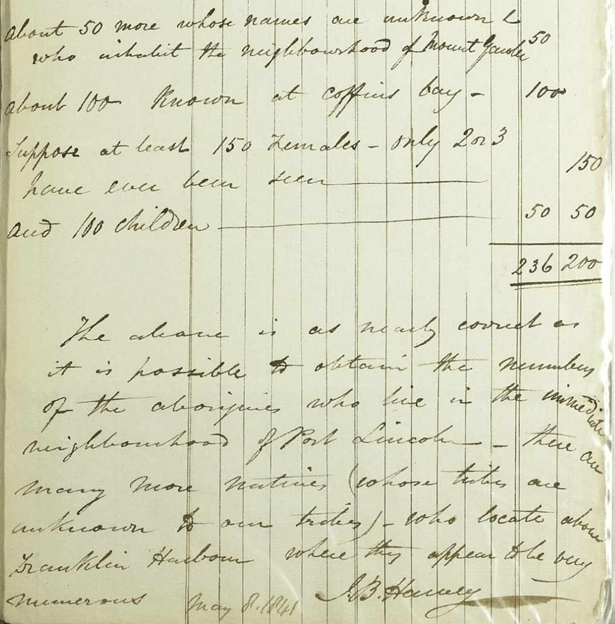 about 50 more whose names are unknown &
who inhabit the neighbourhood of Mount Gawler 50
about 100 Known at coffins bay - 100
Suppose at least 150 Females - only 2 or 3
have ever been seen 150
and 100 children 50 50
236 200
The above is as nearly correct as
it is possible to obtain the numbers
of the aborigines who live in the immediate
neighbourhood of Port Lincoln - there are
many more natives (whose tribes are
unknown to our tribes) - who locate about
Franklin Harbour where they appear to be very
numerous May 8. 1841 J.B. Harvey